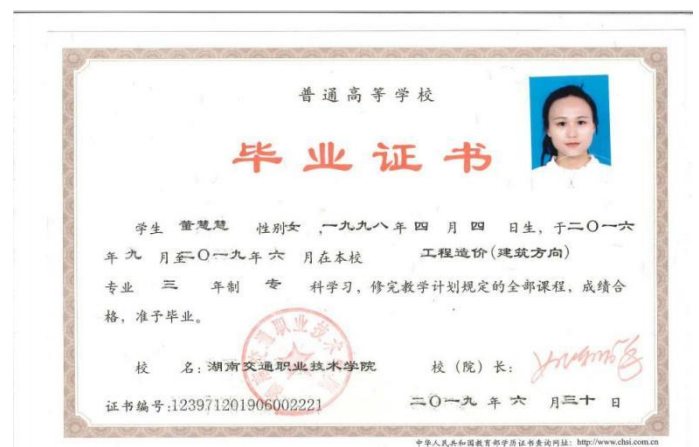 普通高等学校
毕业证书
学生 董慧慧 性别女 ,一九九八年 四 月 四 日生，于二〇一六
年 九 月至二〇一九年 六 月在本校 工程造价(建筑方向)
专业 三 年制 专 科学习，修完教学计划规定的全部课程，成绩合
格，准予毕业。
校 名：湖南交通职业技术学院 校（院）长：
证书编号：123971201906002221 二〇一九 年 六 月三十 日
中华人民共和国教育部学历证书查询网址：http://www.chsi.com.cn